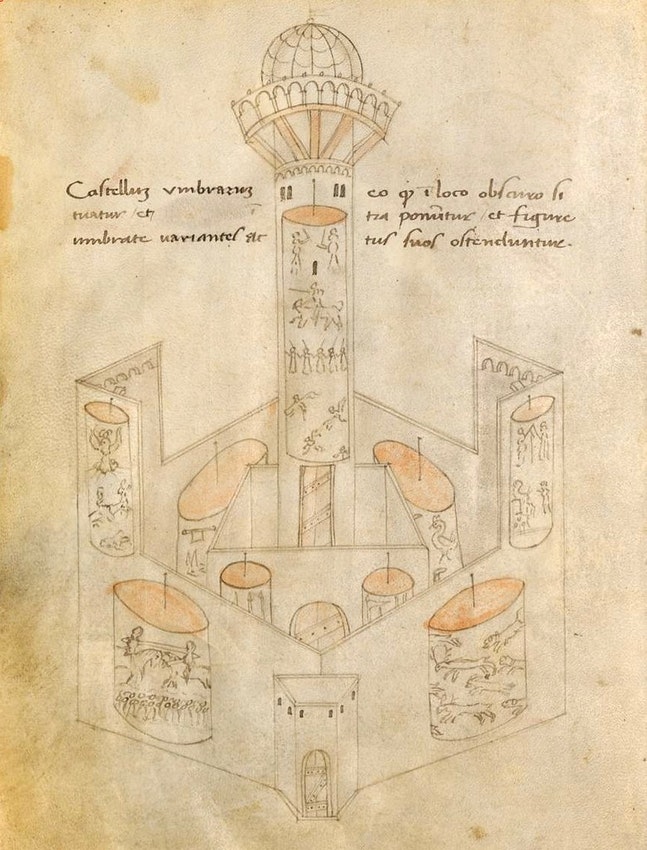 Castelluʒ vmbraruʒ eo qꝫ ī loco obscuro si
tuatur / et ītra ponūtur / et figure
umbrate uariantes ac tus suos ostenduntur.